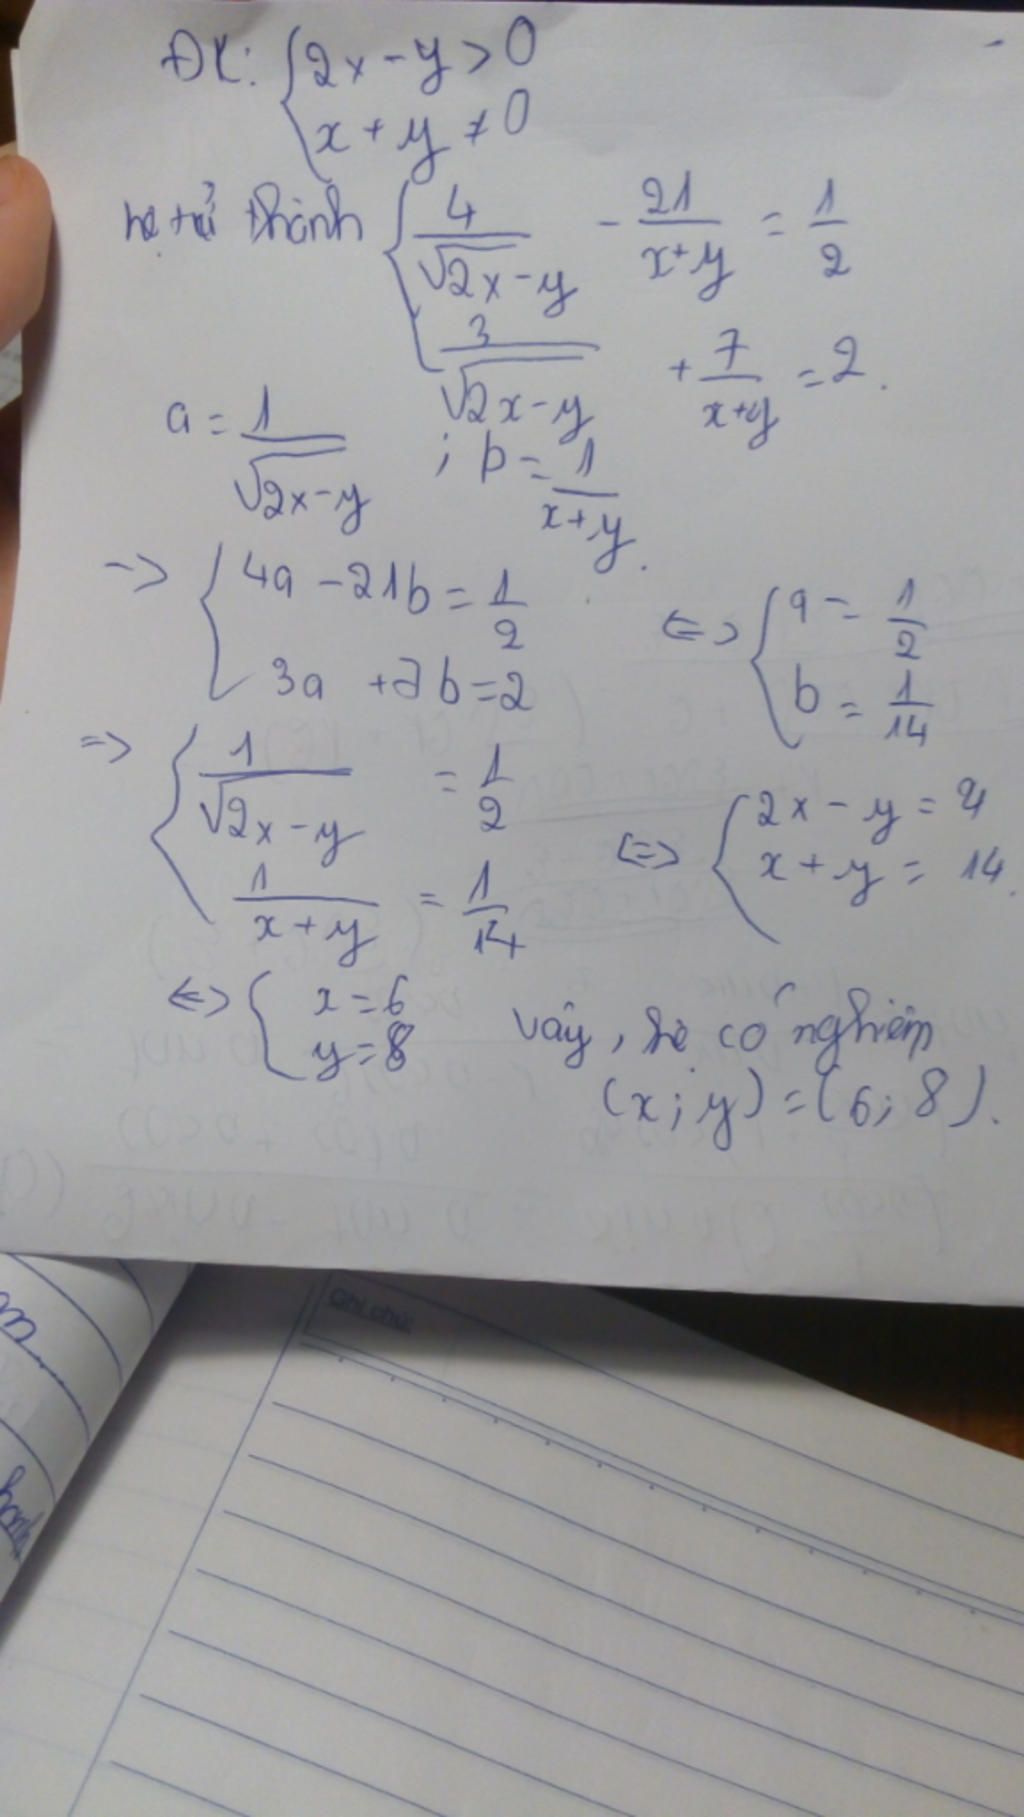 ĐK: { 2x - y > 0
x + y ≠ 0
hệ trở thành { 4/√2x-y - 21/x+y = 1/2
3/√2x-y + 7/x+y = 2.
a = 1/√2x-y ; b = 1/x+y.
-> { 4a - 21b = 1/2
3a + 7b = 2
<=> { a = 1/2
b = 1/14
=> { 1/√2x-y = 1/2
1/x+y = 1/14
<=> { 2x - y = 4
x + y = 14.
<=> { x = 6
y = 8
vậy, hệ có nghiệm
(x; y) = (6; 8).
Ghi chú: